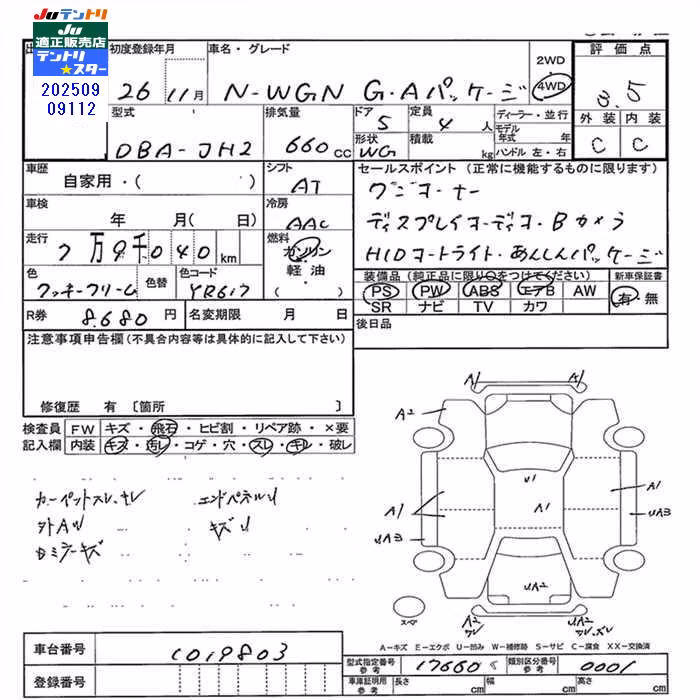 JUテントリ
JU
適正販売店
テントリ
★スター
202509
09112
初度登録年月
26 11月
車名・グレード
N-WGN G・Aパッケージ
2WD
4WD
評価点
3.5
外装 内装
C C
型式
DBA-JH2
排気量
660cc
ドア
5
形状
WG
定員
4人
積載
kg
ディーラー・並行
モデル年式 年
ハンドル 左・右
車歴
自家用・( )
シフト
AT
車検
年 月( 日)
冷房
AAC
走行
7万9千040km
燃料
ガソリン
軽油
・( )
色
クッキークリーム
色替
色コード
YR617
R券 8.680円
名変期限 月 日
セールスポイント(正常に機能するものに限ります)
ワンオーナー
ディスプレイオーディオ・Bカメラ
HIDオートライト・あんしんパッケージ
装備品(純正品に限り○をつけてください)
PS PW ABS エアB AW
SR ナビ TV カワ
新車保証書
有・無
後日品
注意事項申告欄(不具合内容は具体的に記入して下さい)
修復歴 有 〔箇所 〕
検査員記入欄
FW キズ・飛石・ヒビ割・リペア跡・×要
内装 キズ・汚レ・コゲ・穴・スレ・キレ・破レ
カーペットスレ、ヨレ
エンドパネルU
外AU
キズU
Bミラーキズ
A1 A1
A2
U1
A1
A1
A1
UA3
UA3
UA2
A2
UA2
スペア
A-キズ E-エクボ U-凹み W-補修跡 S-サビ C-腐食 XX-交換済
車台番号 1019803
登録番号
型式指定番号 参考 17660
類別区分番号 参考 0001
車庫証明用 参考 長さ cm 幅 cm 高さ cm